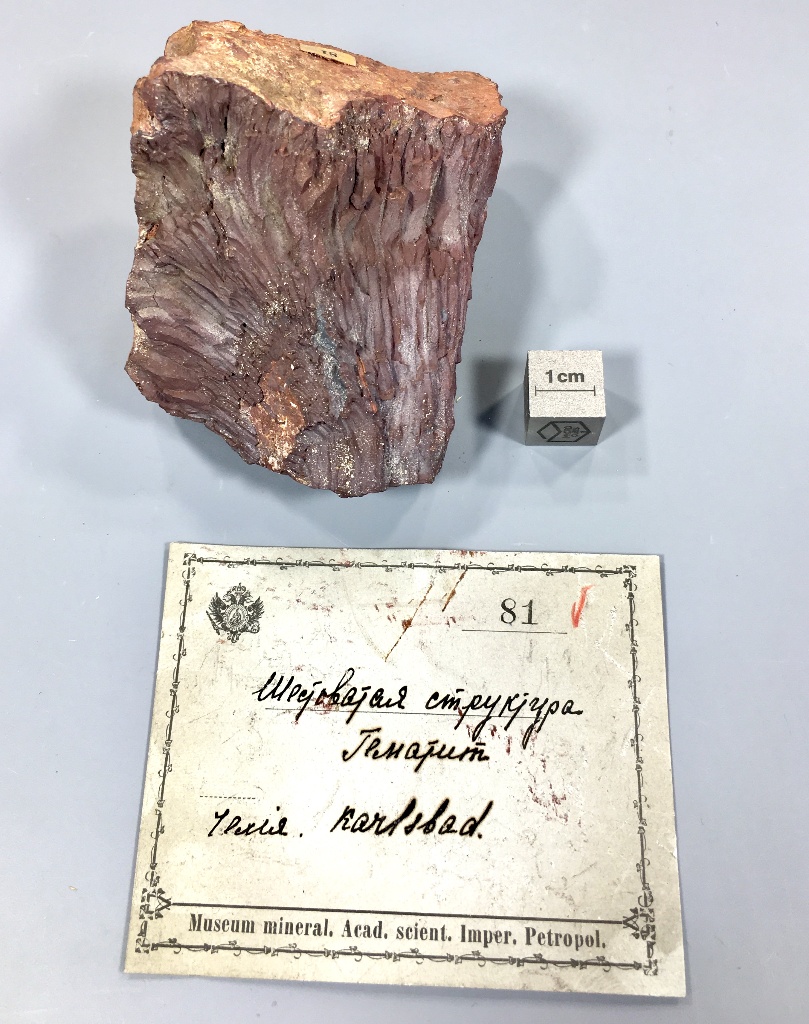 81
1 cm
81
Шестоватая структура
Гематит
Чехія. Karlsbad.
Museum mineral. Acad. scient. Imper. Petropol.